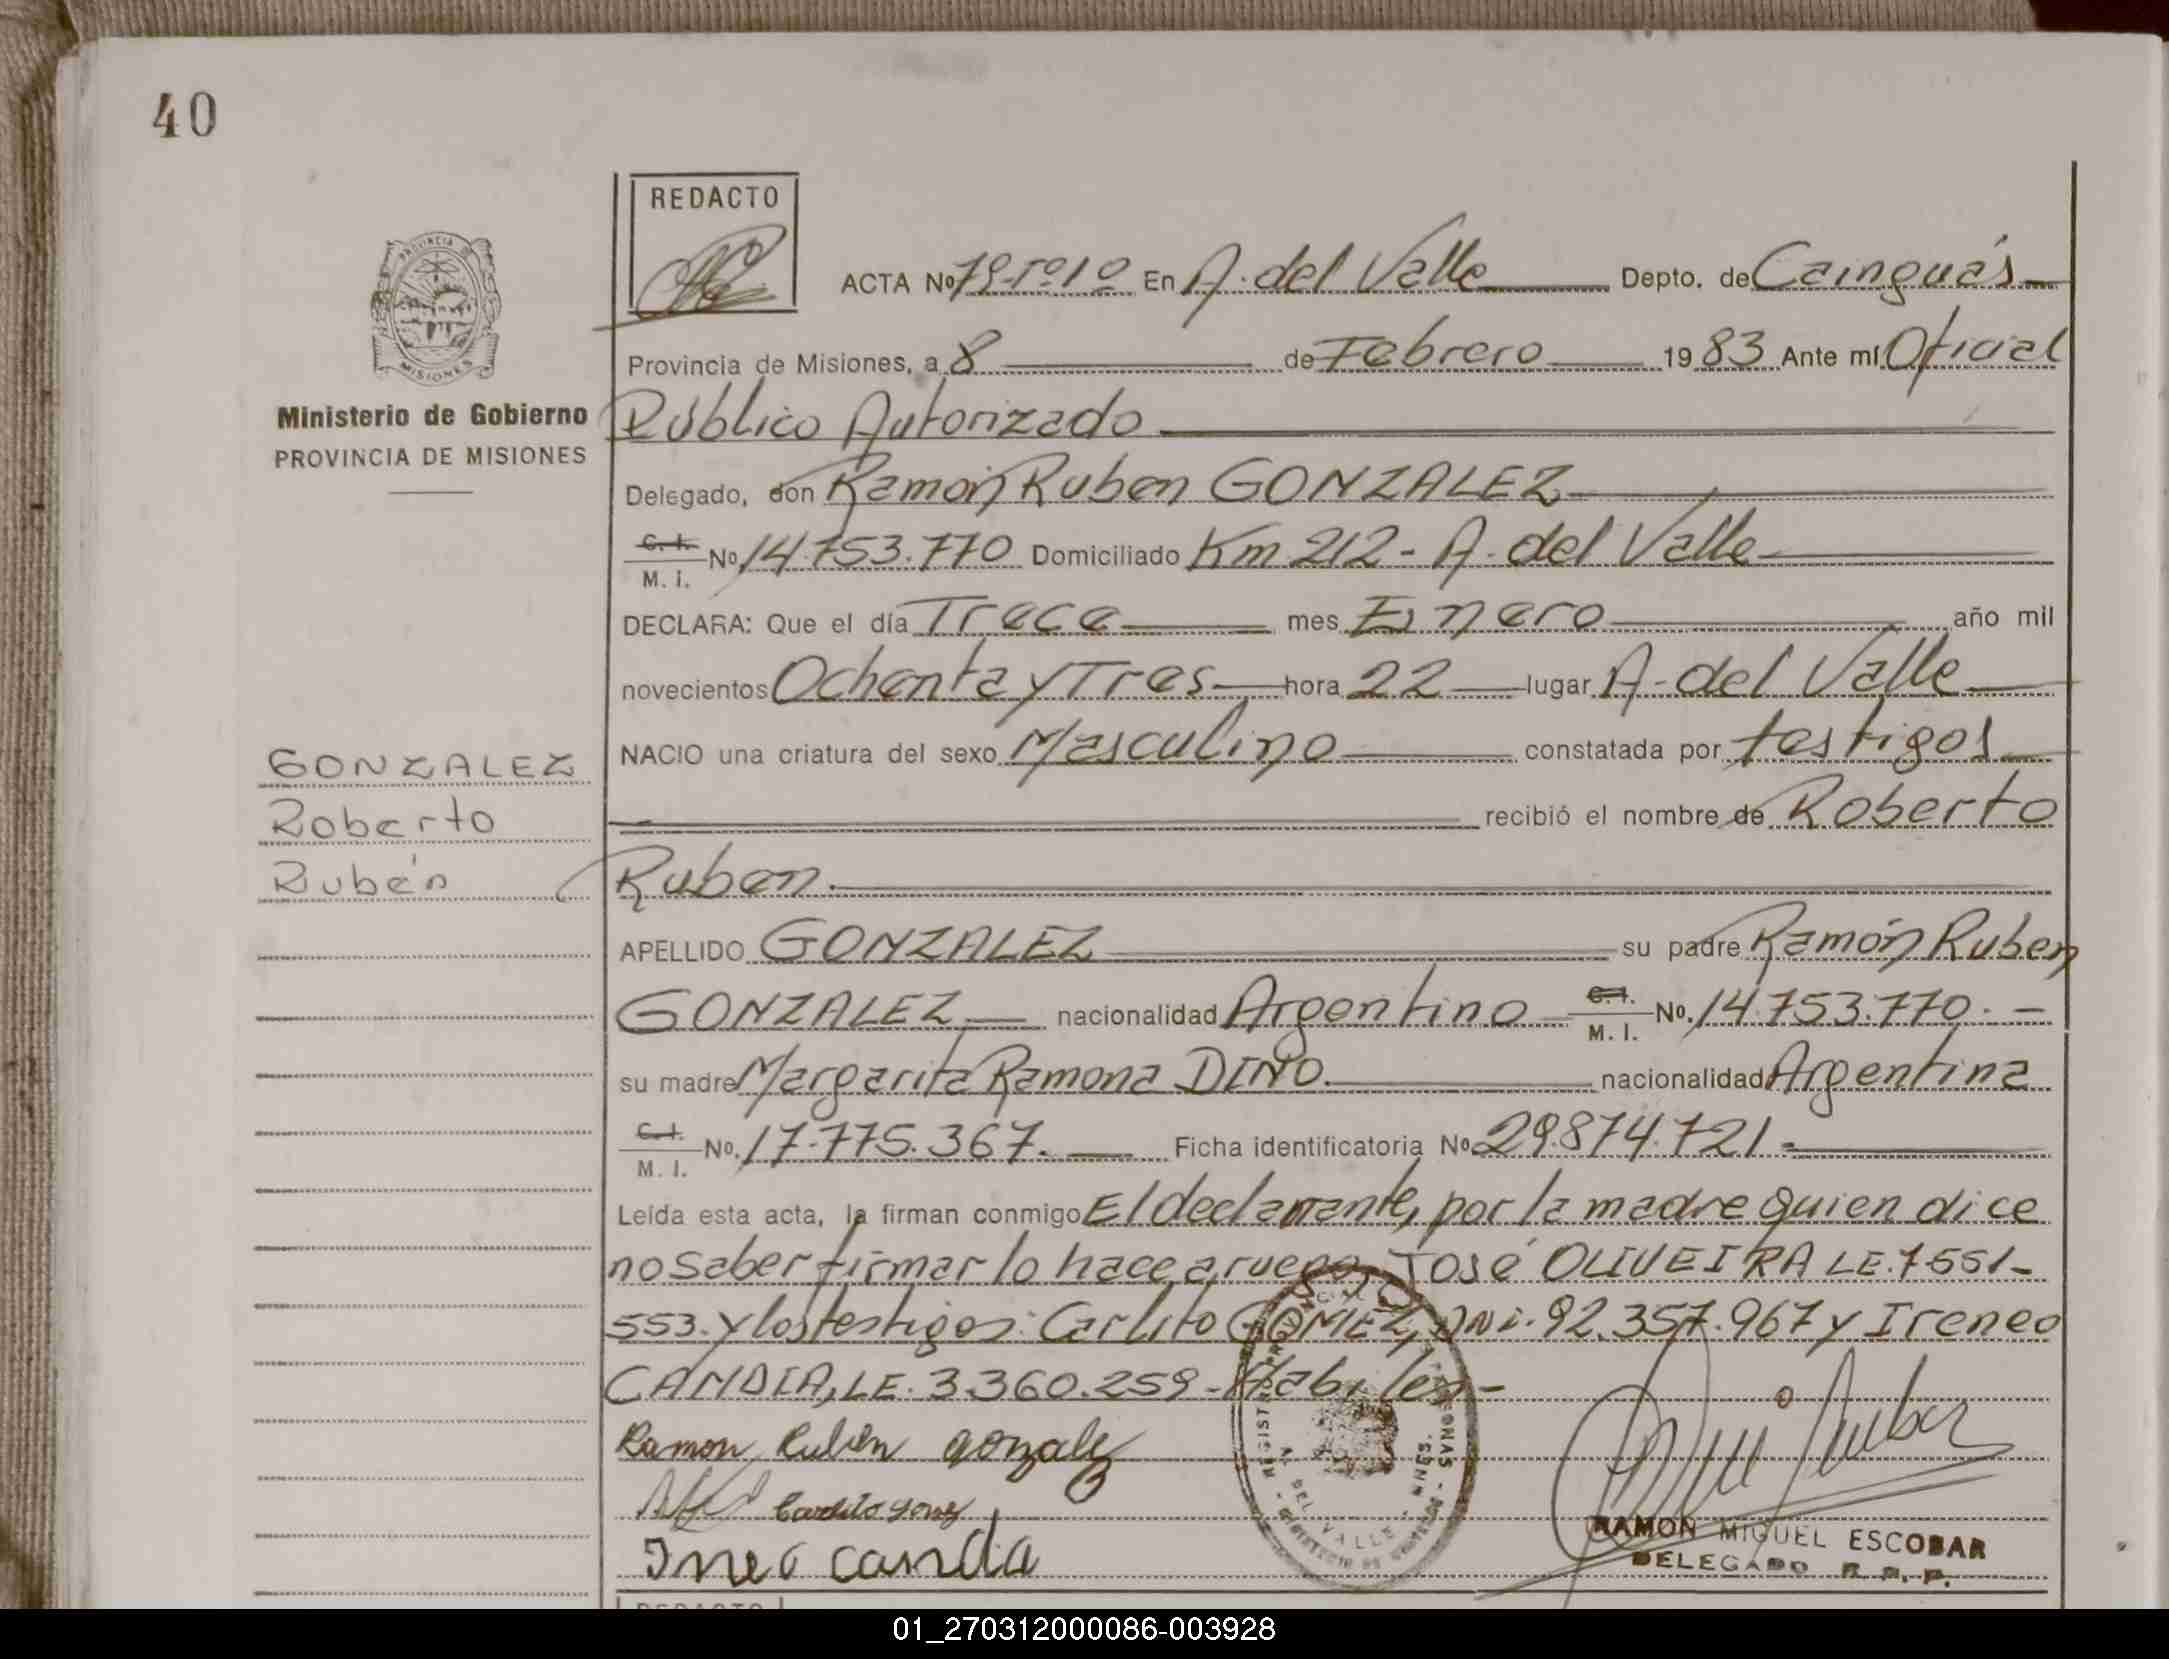 40
REDACTO
PROVINCIA DE
MISIONES
Ministerio de Gobierno
PROVINCIA DE MISIONES
GONZALEZ
Roberto
Rubén
ACTA Nº 79-Tº1º En A. del Valle Depto. de Cainguás
Provincia de Misiones, a 8 de Febrero 1983 Ante mí Oficial
Público Autorizado
Delegado, don Ramón Ruben GONZALEZ
C. I.
M. I. Nº 14.753.770 Domiciliado Km 212 - A. del Valle
DECLARA: Que el día Trece mes Enero año mil
novecientos Ochenta y Tres hora 22 lugar A. del Valle
NACIO una criatura del sexo Masculino constatada por testigos
recibió el nombre de Roberto
Ruben.
APELLIDO GONZALEZ su padre Ramón Ruben
GONZALEZ nacionalidad Argentino C. I. M. I. Nº. 14.753.770. -
su madre Margarita Ramona DINO. nacionalidad Argentina
C. I.
M. I. Nº. 17.775.367. Ficha identificatoria Nº 29.874.721 -
Leída esta acta, la firman conmigo El declarante, por la madre quien dice
no saber firmar lo hace a ruego José OLIVEIRA LE.7551-
553. y los testigos: Carlito GOMEZ, DNI. 92.357.967 y Ireneo
CANDIA, LE. 3.360.259 - Habiles -
Ramon Ruben gonzalez
Carlito gomez
Ineo candia
DEL VALLE - MNES.
RAMON MIGUEL ESCOBAR
DELEGADO R. P. P.
REDACTO
01_270312000086-003928